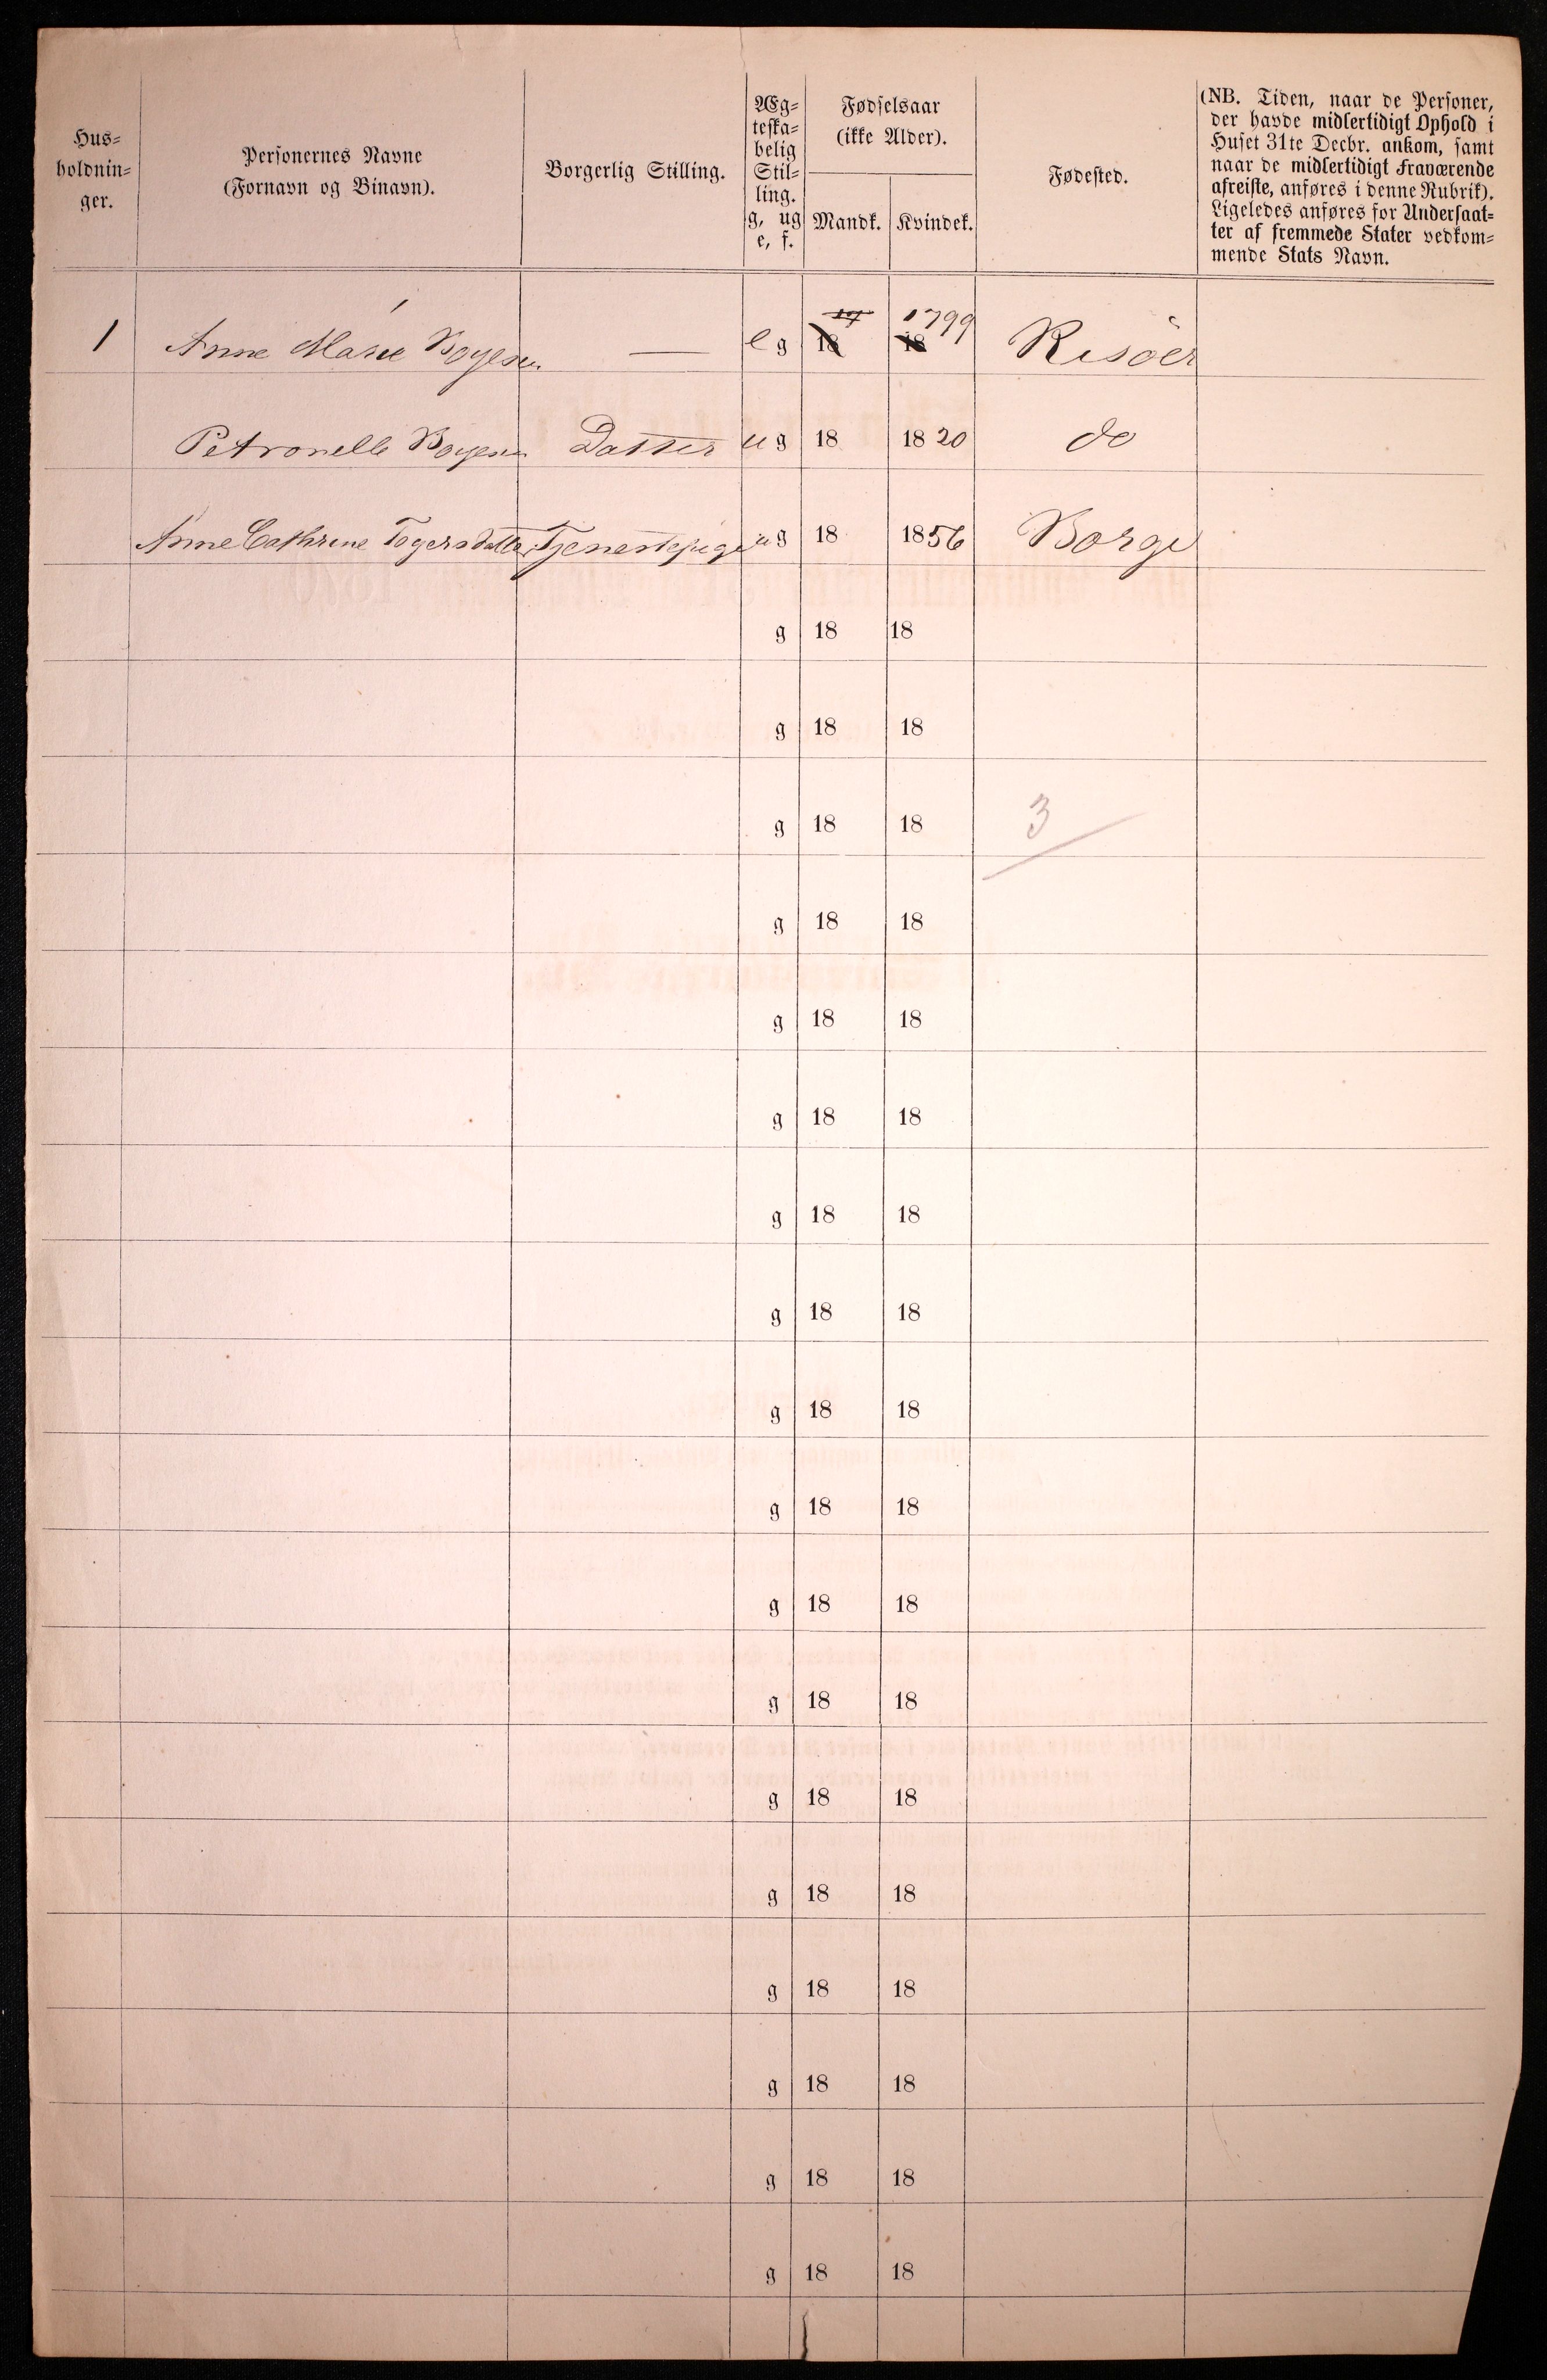 Hus-
holdnin-
ger.
Personernes Navne
(Fornavn og Binavn).
Borgerlig Stilling.
Æg-
teska-
belig
Stil-
ling.
g, ug
e, f.
Fødselsaar
(ikke Alder).
Mandk. Kvindek.
Fødested.
(NB. Tiden, naar de Personer,
der havde midlertidigt Ophold i
Huset 31te Decbr. ankom, samt
naar de midlertidigt fraværende
afreiste, anføres i denne Rubrik).
Ligeledes anføres for Undersaat-
ter af fremmede Stater vedkom-
mende Stats Navn.
1 Anne Marie Boyesen — e g 18 18 1799 Risöer
Petronelle Boyesen Datter u g 18 18 20 do
Anne Cathrine Togersdatter Tjenestepige u g 18 1856 Borge
g 18 18
g 18 18
g 18 18 3
g 18 18
g 18 18
g 18 18
g 18 18
g 18 18
g 18 18
g 18 18
g 18 18
g 18 18
g 18 18
g 18 18
g 18 18
g 18 18
g 18 18
g 18 18